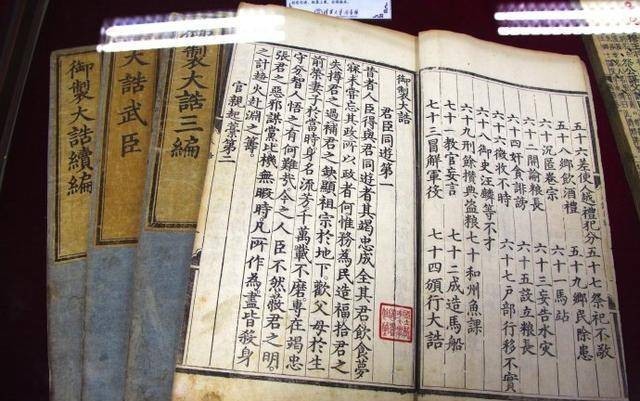 五十六差使人越禮犯分 五十七祭祀不敬
五十八鄉飲酒禮 五十九鄉民除患
六十沉匿卷宗 六十一馬站
六十二開諭糧長 六十三妄告水灾
六十四奸貪誹謗 六十五設立糧長
六十六徵收不時 六十七戶部行移不實
六十八御史汪麟等不才
六十九刑餘攢典盜糧 七十和州魚課
七十一教官妄言 七十二成造馬船
七十三冒解軍役 七十四頒行大誥
御製大誥
君臣同遊第一
昔者人臣得與君同遊者其竭忠成全其君飲食夢
寐未嘗忘其政所以政者何惟務為民造福拾君之
失撙君之過補君之缺顯祖宗於地下歡父母於生
前榮妻子於當時身名流芳千萬載不磨專在竭忠
守分智人悟之有何難哉今之人臣不然蔽君之明
張君之惡邪謀黨比機無暇時凡所作為盡皆殺身
之計趨火赴淵之籌
官親起藁第二
御製大誥三編
大誥武臣
御製大誥續編